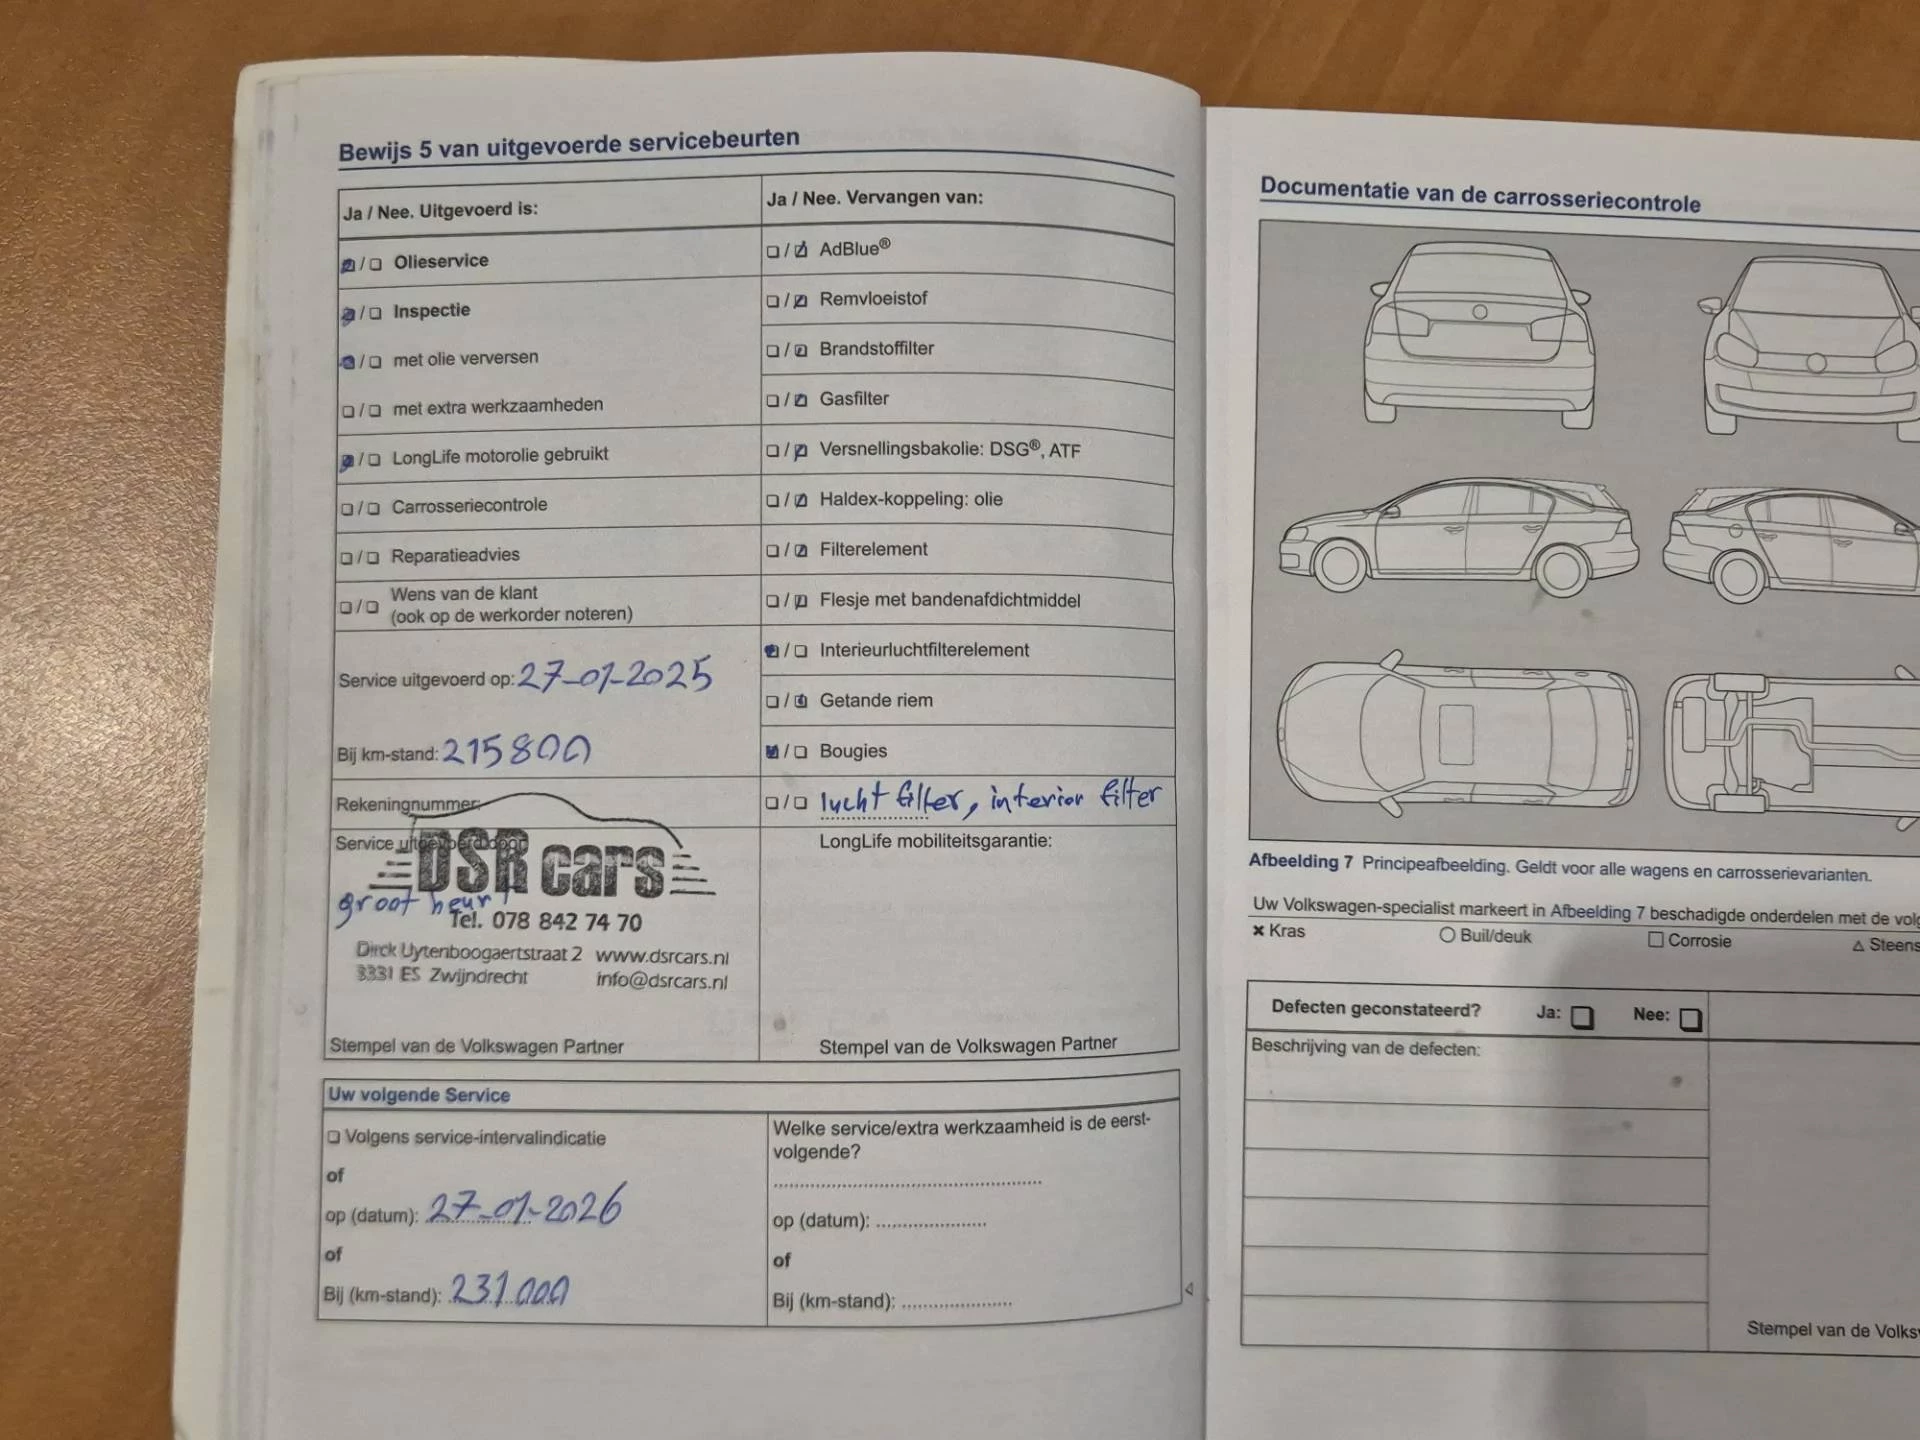 Bewijs 5 van uitgevoerde servicebeurten
Ja / Nee. Uitgevoerd is:
Olieservice
Inspectie
met olie verversen
met extra werkzaamheden
LongLife motorolie gebruikt
Carrosseriecontrole
Reparatieadvies
Wens van de klant
(ook op de werkorder noteren)
Service uitgevoerd op: 27-01-2025
Bij km-stand: 215800
Rekeningnummer:
Service uitgevoerd door:
DSR cars
groot beurt
Tel. 078 842 74 70
Dirck Uytenboogaertstraat 2 www.dsrcars.nl
3331 ES Zwijndrecht info@dsrcars.nl
Stempel van de Volkswagen Partner
Ja / Nee. Vervangen van:
AdBlue®
Remvloeistof
Brandstoffilter
Gasfilter
Versnellingsbakolie: DSG®, ATF
Haldex-koppeling: olie
Filterelement
Flesje met bandenafdichtmiddel
Interieurluchtfilterelement
Getande riem
Bougies
lucht filter, interior filter
LongLife mobiliteitsgarantie:
Stempel van de Volkswagen Partner
Uw volgende Service
Volgens service-intervalindicatie
of
op (datum): 27-01-2026
of
Bij (km-stand): 231.000
Welke service/extra werkzaamheid is de eerst-
volgende?
op (datum):
of
Bij (km-stand):
Documentatie van de carrosseriecontrole
Afbeelding 7 Principeafbeelding. Geldt voor alle wagens en carrosserievarianten.
Uw Volkswagen-specialist markeert in Afbeelding 7 beschadigde onderdelen met de volg
× Kras
Buil/deuk
Corrosie
Steens
Defecten geconstateerd? Ja: Nee:
Beschrijving van de defecten:
Stempel van de Volksw